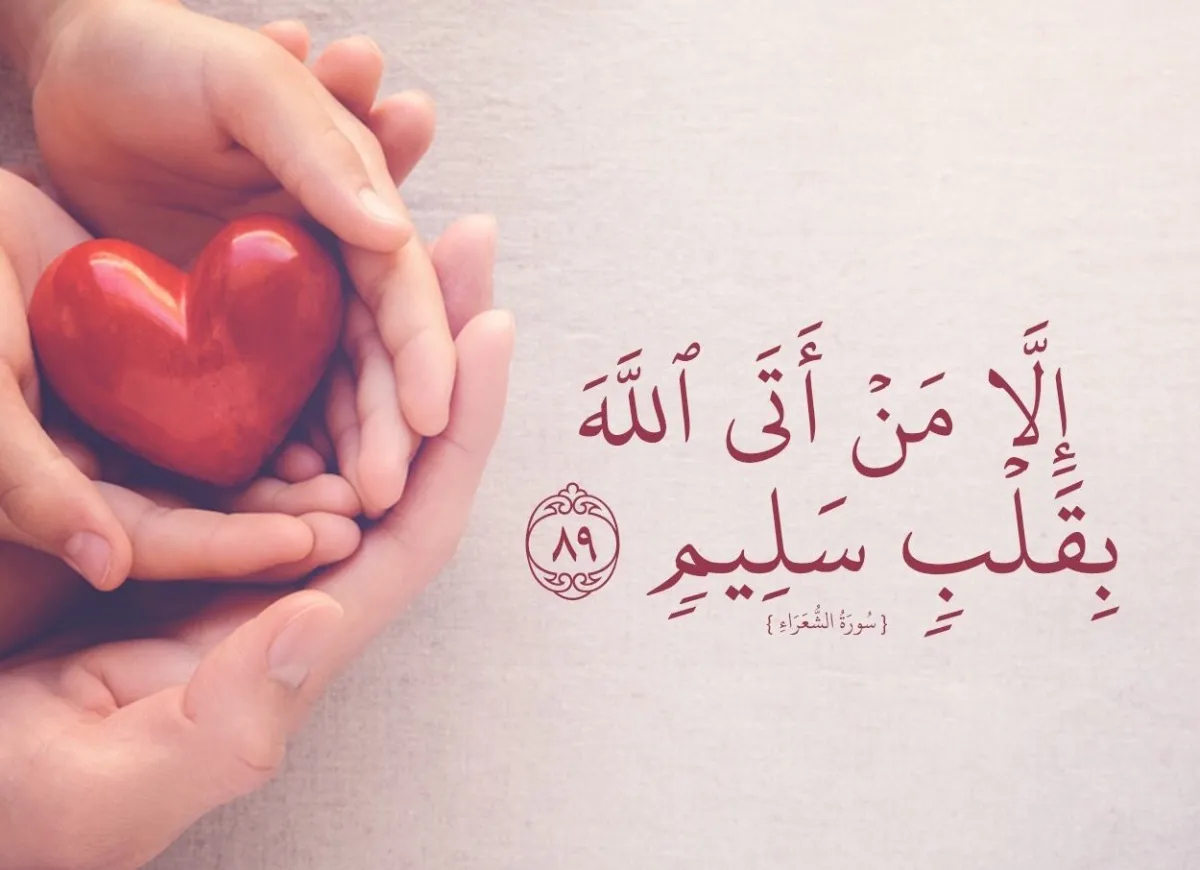 إِلَّا مَنْ أَتَى ٱللَّهَ
بِقَلْبٍ سَلِيمٍ ٨٩
{ سُورَةُ الشُّعَرَاءِ }